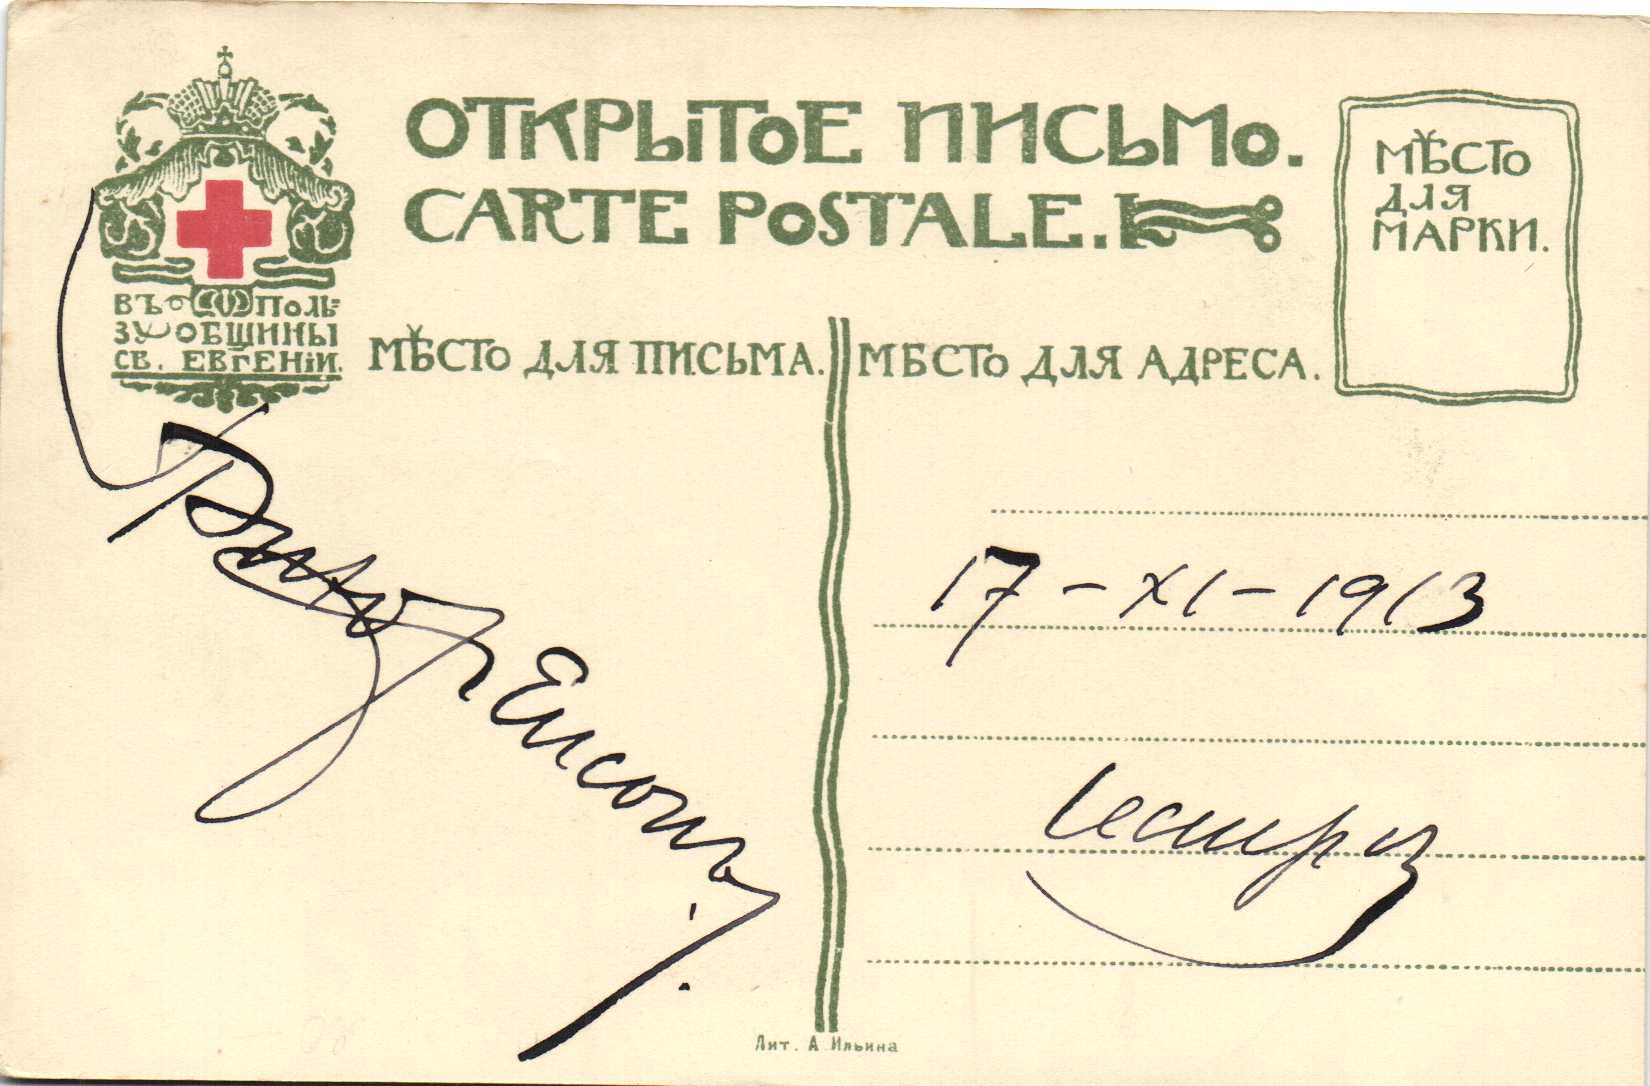 ОТКРЫТОЕ ПИСЬМО.
CARTE POSTALE.
МѢСТО
ДЛЯ
МАРКИ.
ВЪ ПОЛЬ=
ЗУ ОБЩИНЫ
СВ. ЕВГЕНІИ.
МѢСТО ДЛЯ ПИСЬМА.
МѢСТО ДЛЯ АДРЕСА.
17-XI-1913
Лит. А. Ильина